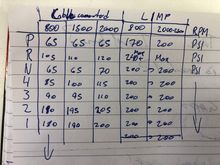 connected LIMP
800 1500 2000 800 2000 RPM
P 65 65 65 170 200 PSI
R 105 110 120 Max PSI
N 65 65 70 200 200
4 85 100 115 200 200
3 90 95 110 200 200
2 180 195 205 200 200
1 180 190 200 200 200
200 200